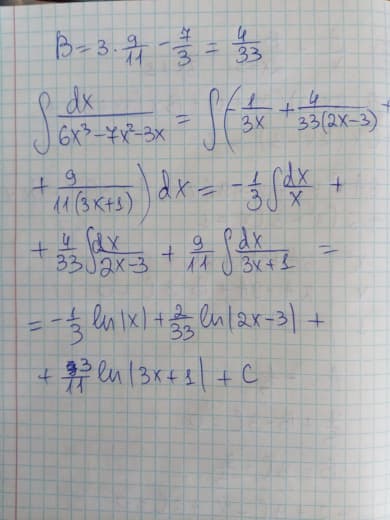 B = 3 · 9/11 − 7/3 = 4/33
∫ dx/(6x³−7x²−3x) = ∫(−1/(3x) + 4/(33(2x−3)) +
+ 9/(11(3x+1))) dx = −1/3 ∫ dx/x +
+ 4/33 ∫ dx/(2x−3) + 9/11 ∫ dx/(3x+1) =
= −1/3 ln|x| + 2/33 ln|2x−3| +
+ 3/11 ln|3x+1| + C